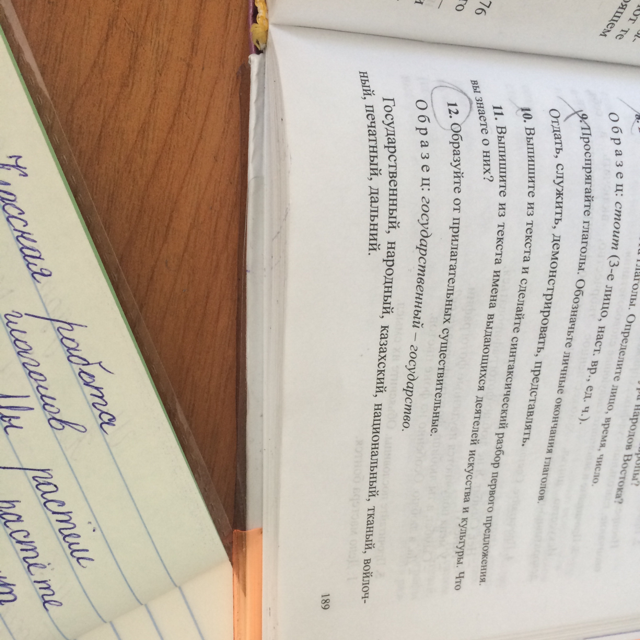 76
глаголы. Определите лицо, время, число.
народов Востока?
Образец: стоит (3-е лицо, наст. вр., ед. ч.).
9. Проспрягайте глаголы. Обозначьте личные окончания глаголов.
Отдать, служить, демонстрировать, представлять.
10. Выпишите из текста и сделайте синтаксический разбор первого предложения.
11. Выпишите из текста имена выдающихся деятелей искусства и культуры. Что
вы знаете о них?
12. Образуйте от прилагательных существительные.
Образец: государственный – государство.
Государственный, народный, казахский, национальный, тканый, войлоч-
ный, печатный, дальний.
189
Классная работа
глаголов
Мы растём
растёте